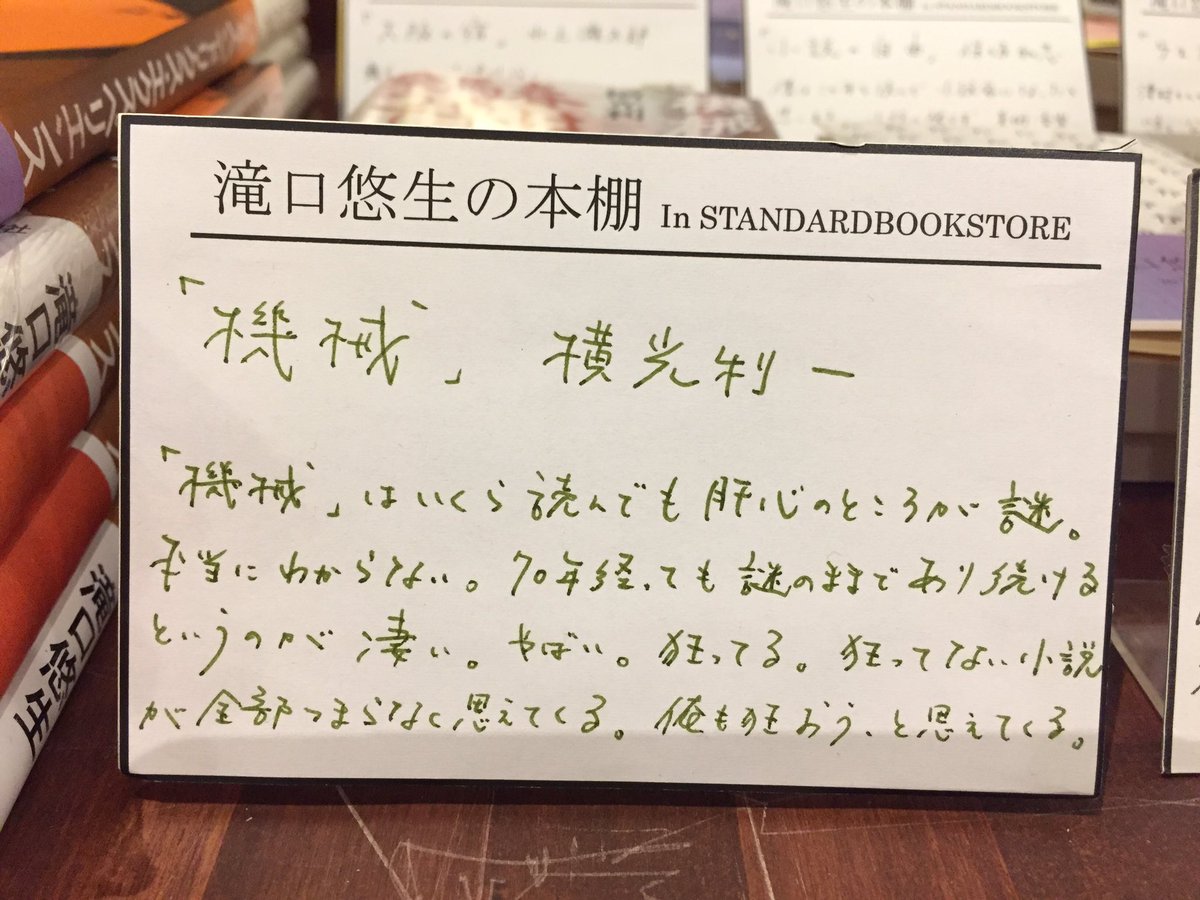 滝口悠生の本棚 In STANDARDBOOKSTORE
「機械」 横光利一
「機械」はいくら読んでも肝心のところが謎。
本当にわからない。70年経っても謎のままであり続ける
というのが凄い。やばい。狂ってる。狂ってない小説
が全部つまらなく思えてくる。俺も狂おう、と思えてくる。
滝口悠
滝口悠生